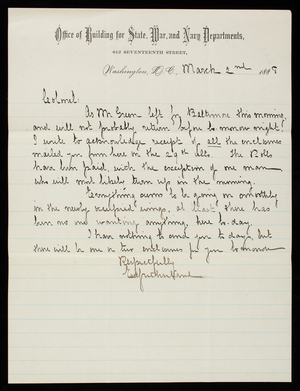 Office of Building for State, War, and Navy Departments,
612 SEVENTEENTH STREET,
Washington, D. C., March 2nd 1885
Colonel:
As Mr. Green left for Baltimore this morning,
and will not probably return before to-morrow night
I write to acknowledge receipt of all the enclosures
mailed you from here on the 29th ulto. The Rolls
have been paid, with the exception of one man
who will most likely turn up in the morning.
Everything seems to be going on smoothly
in the newly occupied wings, at least there has
been no one wanting anything here to-day.
I have nothing to send you to-day, but
there will be one or two enclosures for you to-morrow
Respectfully